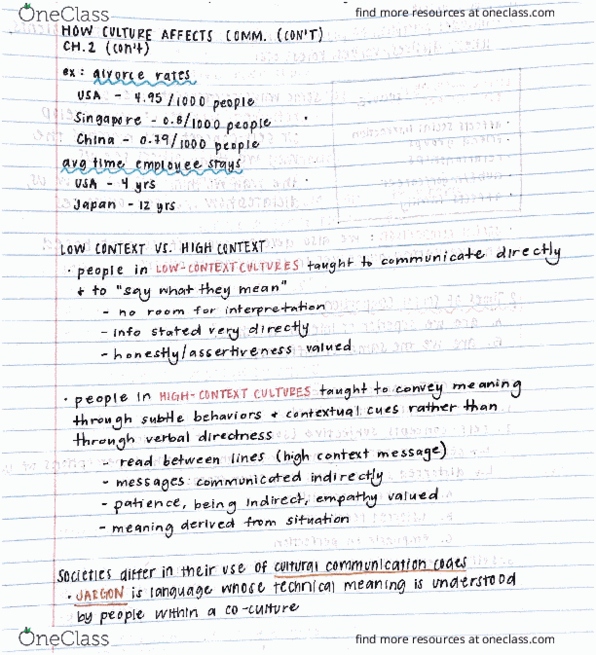 OneClass
find more resources at oneclass.com
HOW CULTURE AFFECTS COMM. (CON'T)
CH.2 (con't)
ex: divorce rates
USA - 4.95/1000 people
Singapore - 0.8/1000 people
China - 0.79/1000 people
avg time employee stays
USA - 4 yrs
Japan - 12 yrs
LOW CONTEXT VS. HIGH CONTEXT
• people in LOW-CONTEXT CULTURES taught to communicate directly
+ to "say what they mean"
- no room for interpretation
- info stated very directly
- honestly/assertiveness valued
• people in HIGH-CONTEXT CULTURES taught to convey meaning
through subtle behaviors + contextual cues rather than
through verbal directness
- read between lines (high context message)
- messages communicated indirectly
- patience, being indirect, empathy valued
- meaning derived from situation
Societies differ in their use of cultural communication codes
• JARGON is language whose technical meaning is understood
by people within a co-culture
OneClass
find more resources at oneclass.com